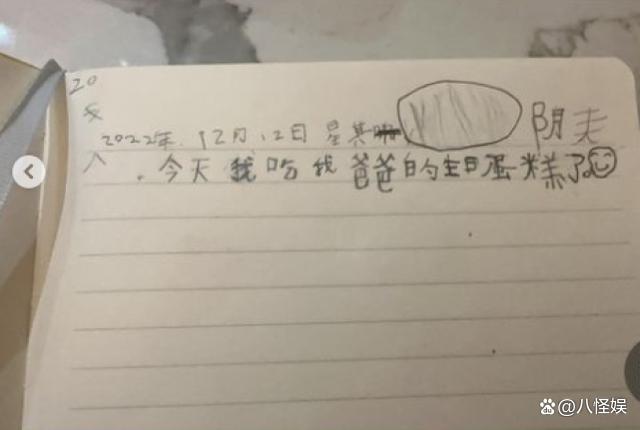 20
2022年.12月.12日 星其 阴天
入.今天我吃我爸爸的生日蛋糕了
@八怪娱